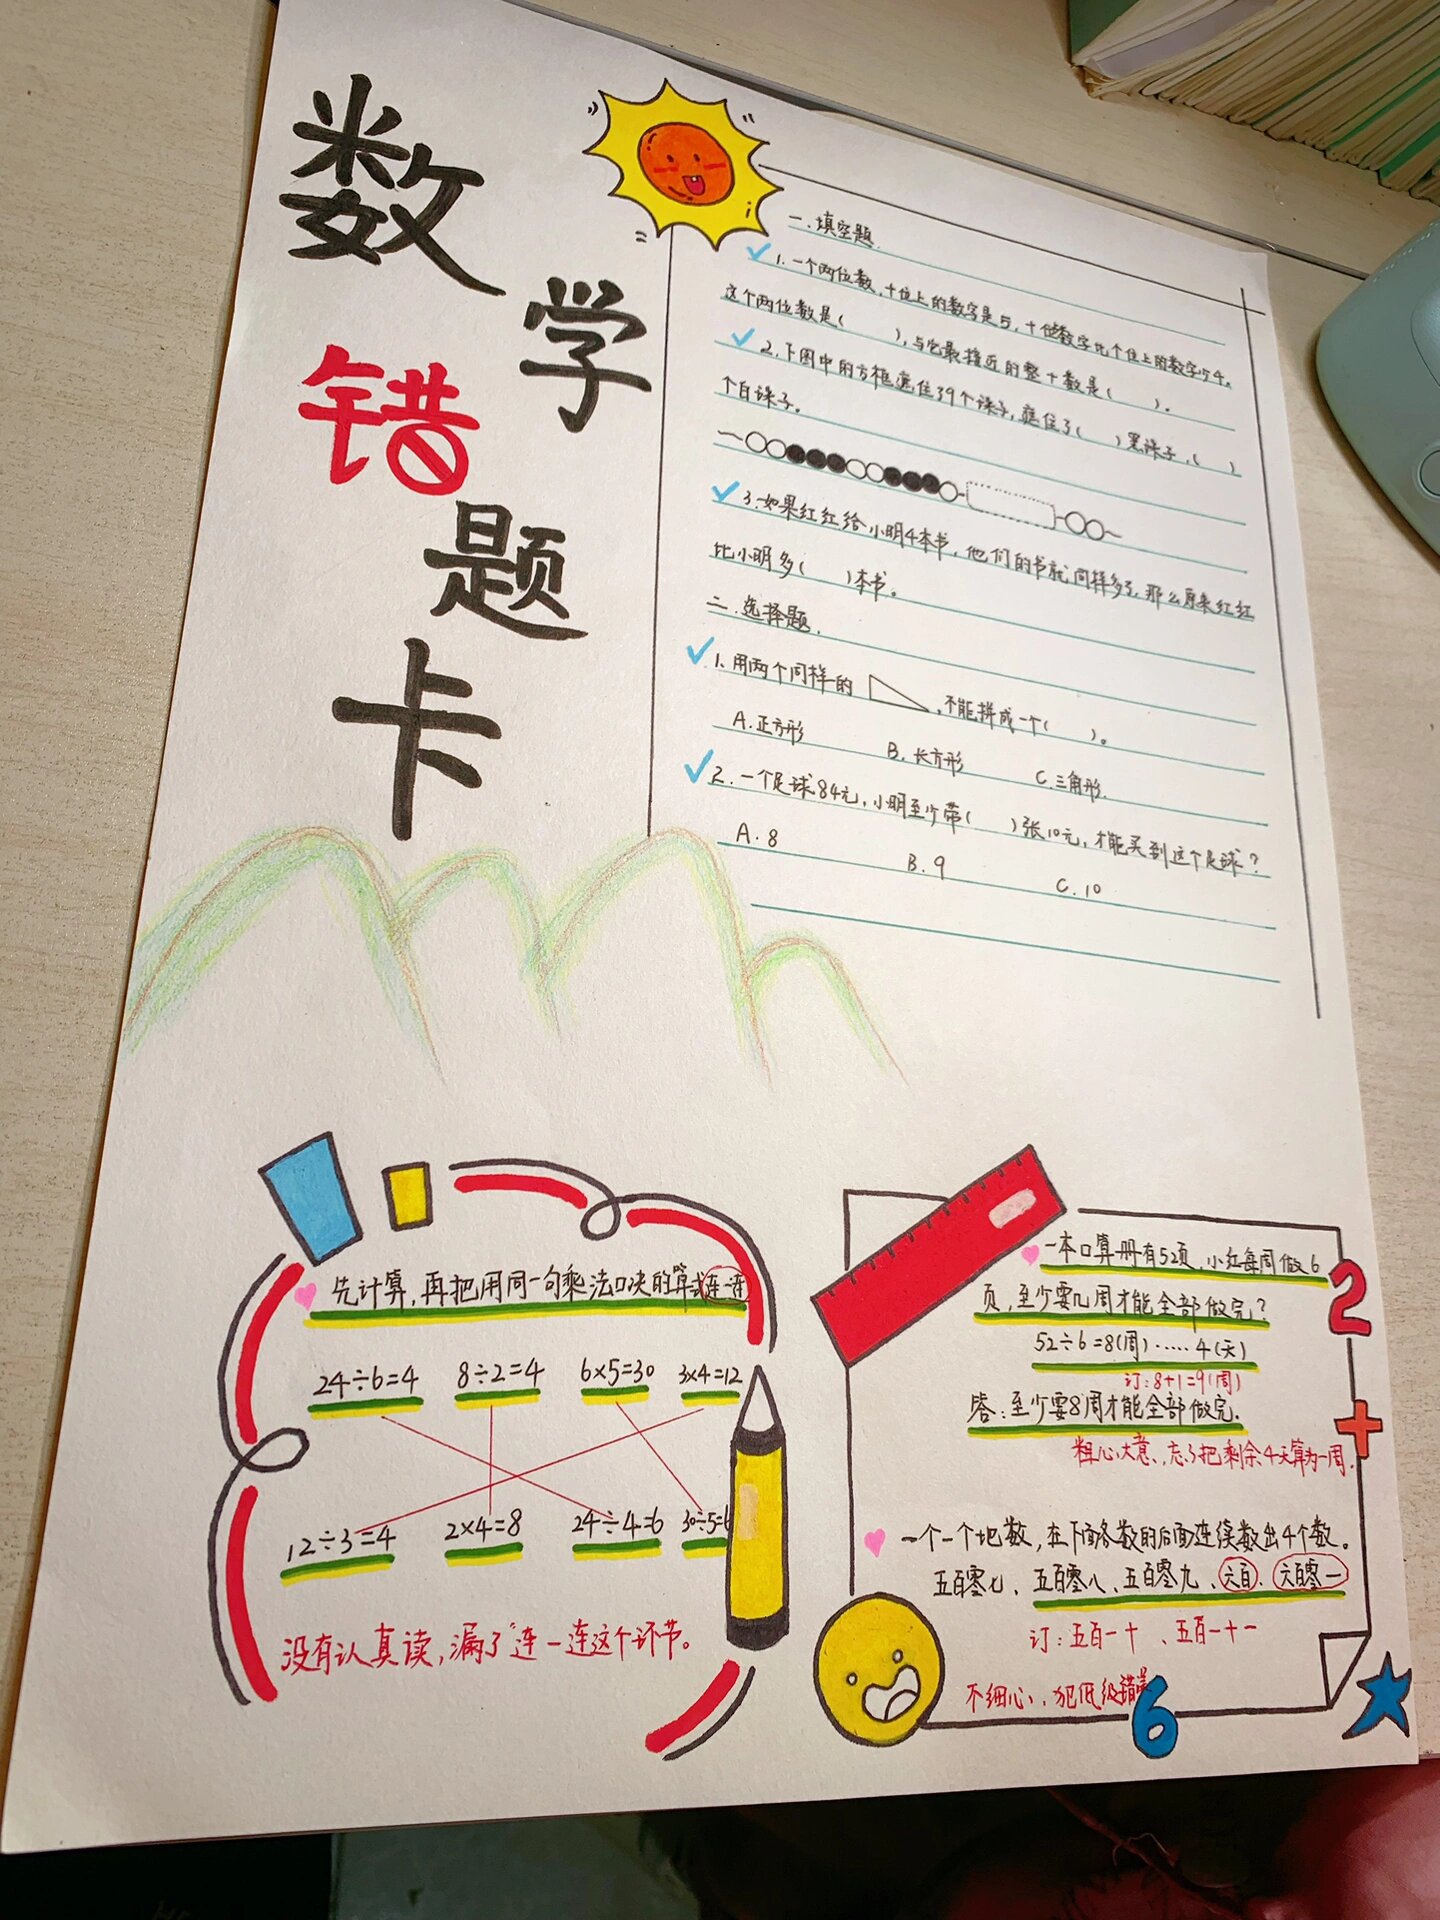 数
学
错
题
卡
一.填空题.
1.一个两位数,十位上的数字是5,十位数字比个位上的数字少4,
这个两位数是(  ),与它最接近的整十数是(  )。
2.下图中的方框遮住了9个珠子,遮住了(  )黑珠子,(  )
个白珠子。
3.如果红红给小明4本书,他们的书就同样多了,那么原来红红
比小明多(  )本书。
二.选择题.
1.用两个同样的,不能拼成一个(  )。
A.正方形 B.长方形 C.三角形.
2.一个足球84元,小明至少带(  )张10元,才能买到这个足球?
A.8 B.9 C.10
先计算,再把用同一句乘法口决的算式连一连
24÷6=4 8÷2=4 6×5=30 3×4=12
12÷3=4 2×4=8 24÷4=6 30÷5=6
没有认真读,漏了“连一连这个环节。
一本口算册有52页,小红每周做6
页,至少要几周才能全部做完?
52÷6=8(周)……4(天)
订:8+1=9(周)
答:至少要8周才能全部做完.
粗心大意、忘了把剩余4天算为一周.
一个一个地数,在下面各数的后面连续数出4个数。
五百零七、五百零八、五百零九、六百、六百零一
订:五百一十、五百一十一
不细心、犯低级错误
2
+
6